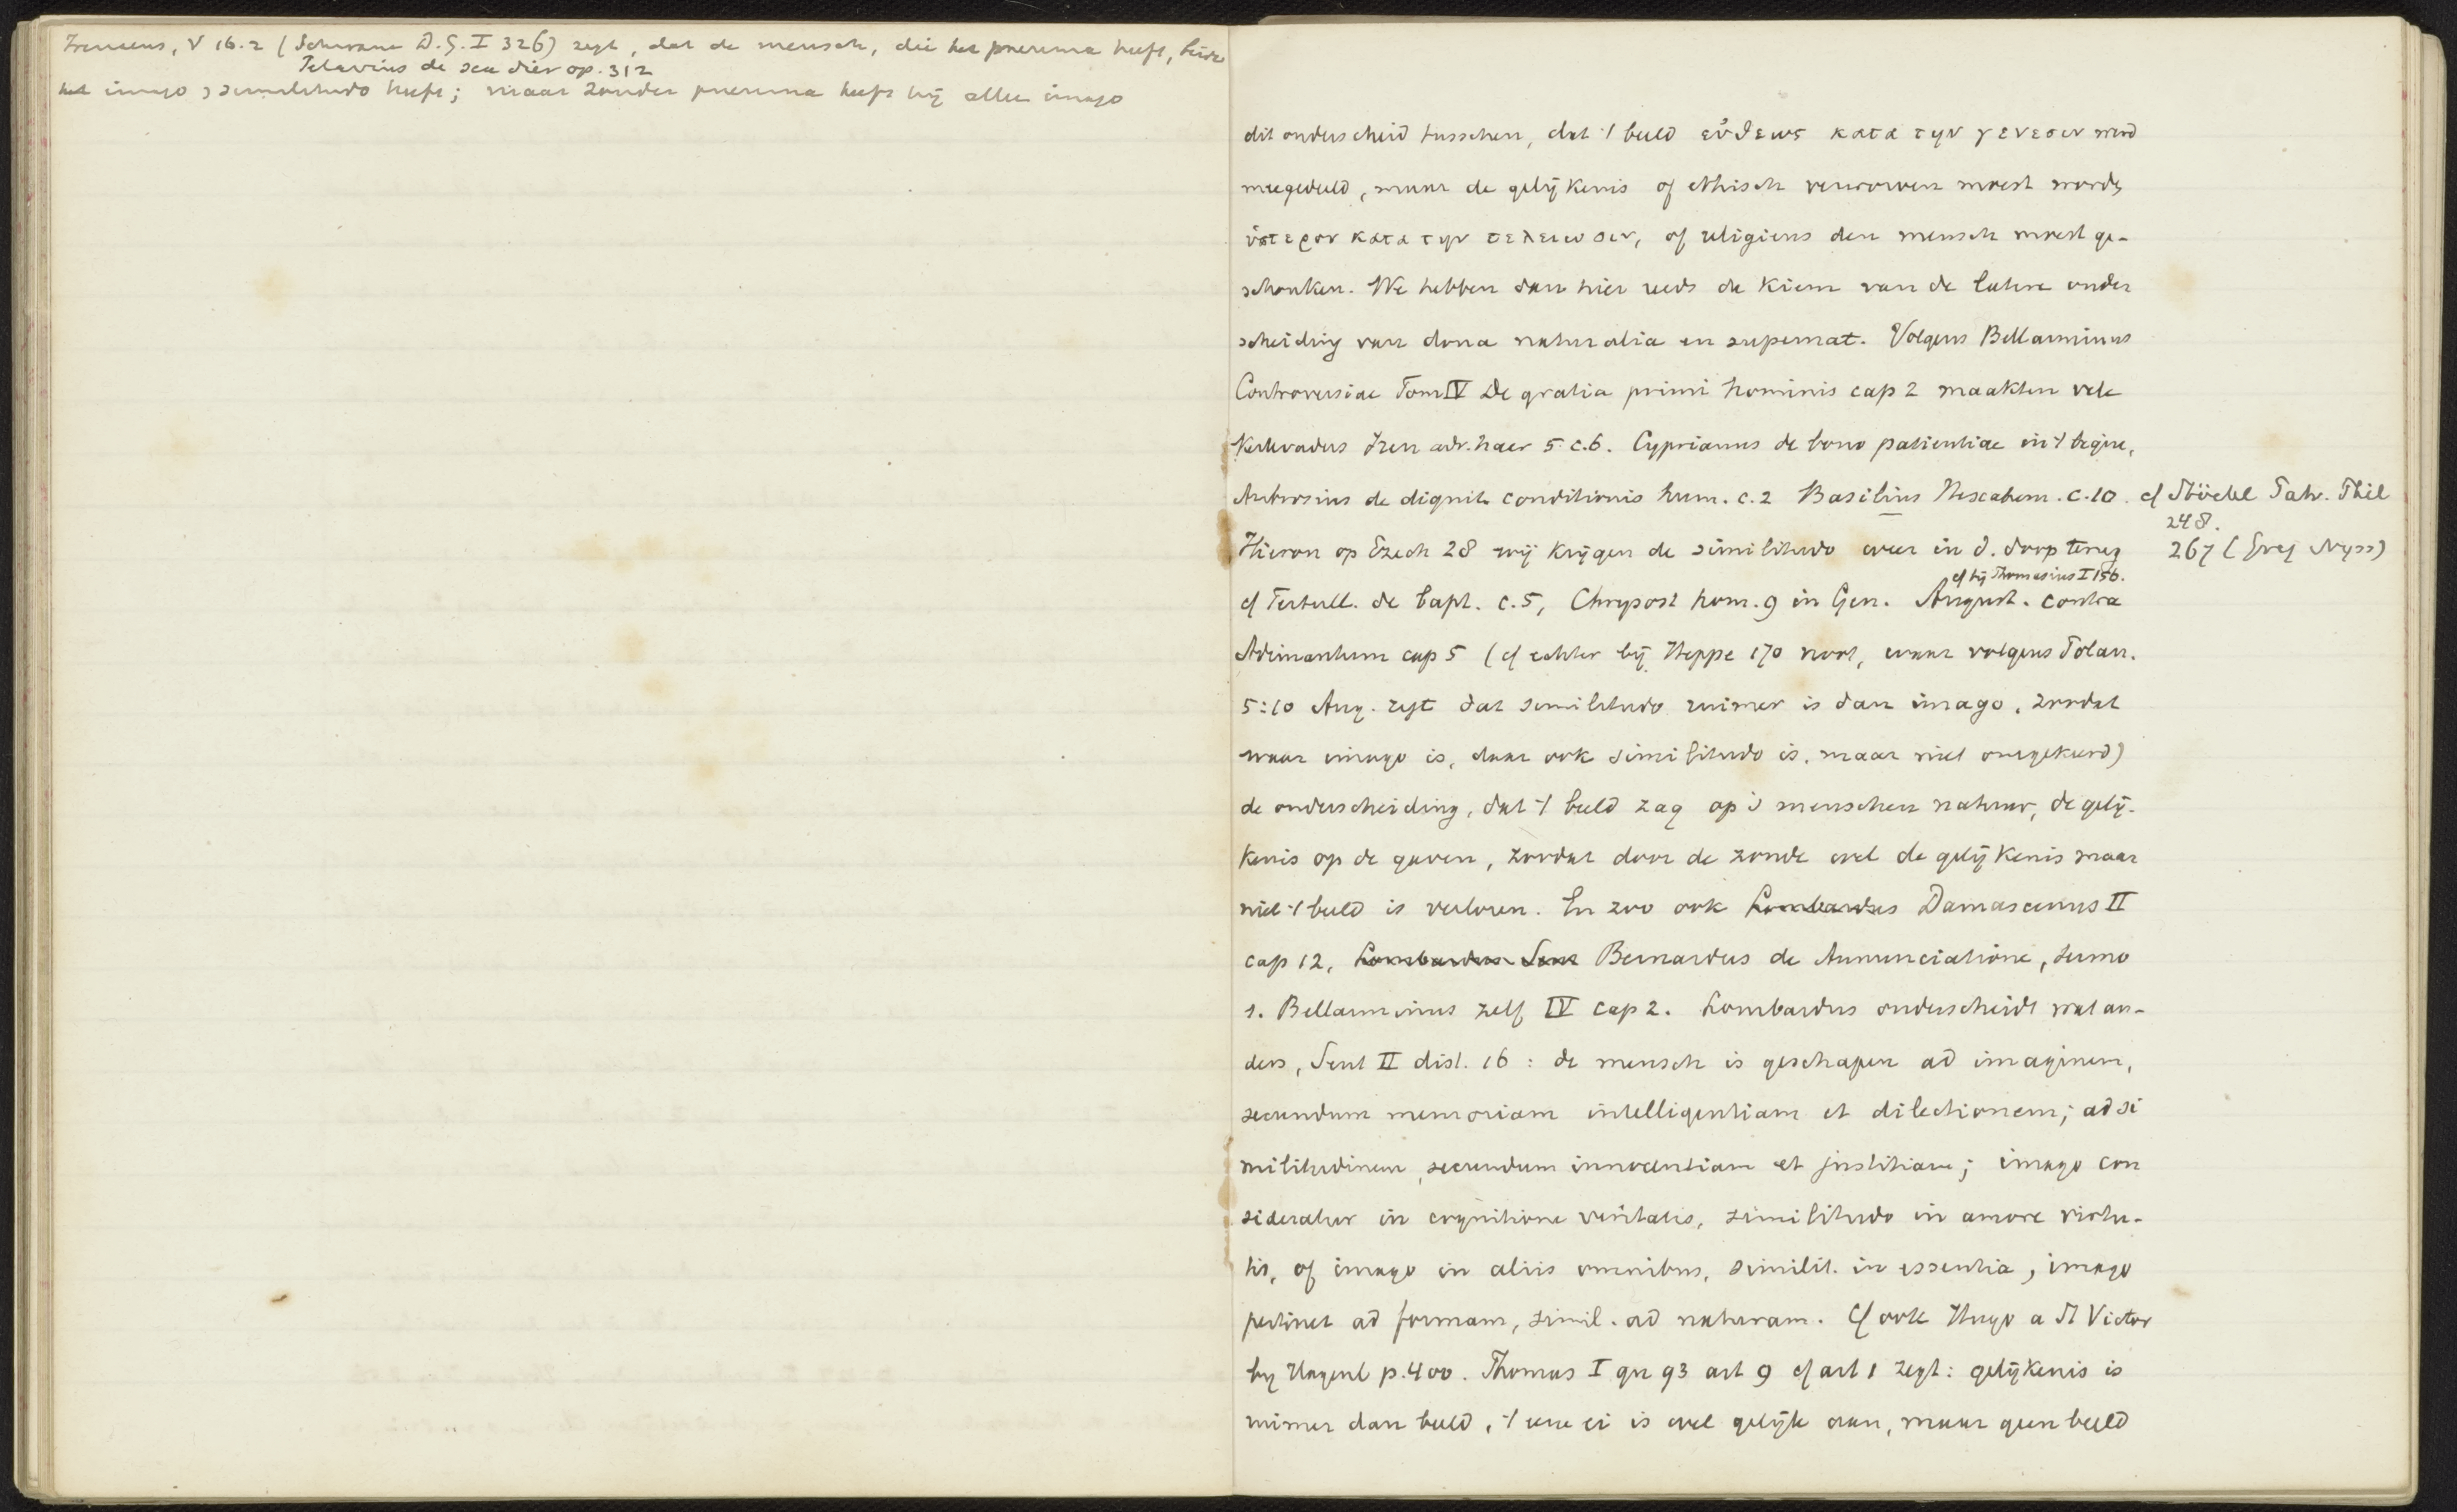 Irenaeus, V 16.2 (Schwane D.G. I 326) zegt, dat de mensch, die het pneuma heeft, beide
Petavius de sex dier op. 312
het imago & similitudo heeft; maar zonder pneuma heeft hij alleen imago
dit onderscheid tusschen, dat 't beeld εὐθεως κατα την γενεσιν werd
meegedeeld, maar de gelijkenis of ethisch verworven moest worden
ὑστερον κατα την τελειωσιν, of religieus den mensch moest ge-
schonken. We hebben dan hier reeds de kiem van de latere onder
scheiding van dona naturalia en supernat. Volgens Bellarminus
Controversiae Tom IV De gratia primi hominis cap 2 maakten vele
Kerkvaders Iren adv. haer 5. c.6. Cyprianus de bono patientiae in 't begin,
Ambrosius de dignit conditionis hum. c.2 Basilius Hexahem. c.10. cf Stöckl Patr. Phil
248.
Hieron op Ezech 28 wij krijgen de similitudo weer in d. doop terug 267 (Greg Nyss)
cf bij Thomasius I 156.
cf Tertull. de bapt. c.5, Chrysost hom. 9 in Gen. August. contra
Adimantum cap 5 (cf echter bij Heppe 170 noot, waar volgens Polan.
5:10 Aug. zegt dat similitudo ruimer is dan imago, zoodat
waar imago is, daar ook similitudo is, maar niet omgekeerd)
de onderscheiding, dat 't beeld zag op 's menschen natuur, de gelij-
kenis op de gaven, zoodat door de zonde wel de gelijkenis maar
niet 't beeld is verloren. En zoo ook Lombardus Damascenus II
cap 12, Lombardus Sent Bernardus de Annunciatione, sermo
1. Bellarminus zelf IV cap 2. Lombardus onderscheidt wat an-
ders, Sent II dist. 16: de mensch is geschapen ad imaginem,
secundum memoriam intelligentiam et dilectionem; ad si
militudinem, secundum innocentiam et justitiam; imago con
sideratur in cognitione veritatis, similitudo in amore virtu-
tis, of imago in aliis omnibus, similit. in essentia, imago
pertinet ad formam, simil. ad naturam. Cf ook Hugo a St Victor
by Hagenb p. 400. Thomas I qu 93 art 9 cf art 1 zegt: gelijkenis is
ruimer dan beeld, 't eene ei is wel gelijk aan, maar geen beeld